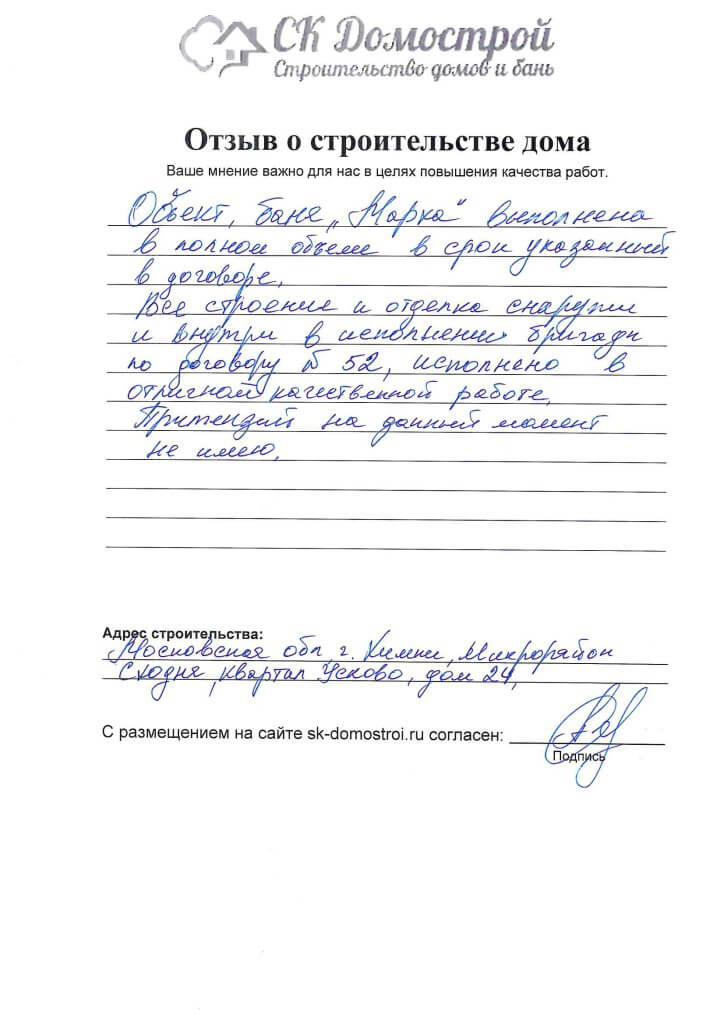 СК Домострой
Строительство домов и бань
Отзыв о строительстве дома
Ваше мнение важно для нас в целях повышения качества работ.
Объект, баня „Марка“ выполнена
в полном объеме в срок указанный
в договоре.
Все строение и отделка снаружи
и внутри в исполнении бригады
по договору № 52, исполнено в
отличной качественной работе.
Притензий на данный момент
не имею.
Адрес строительства:
Московская обл, г. Химки, Микрорайон
Сходня, квартал Усково, дом 24,
С размещением на сайте sk-domostroi.ru согласен:
Подпись